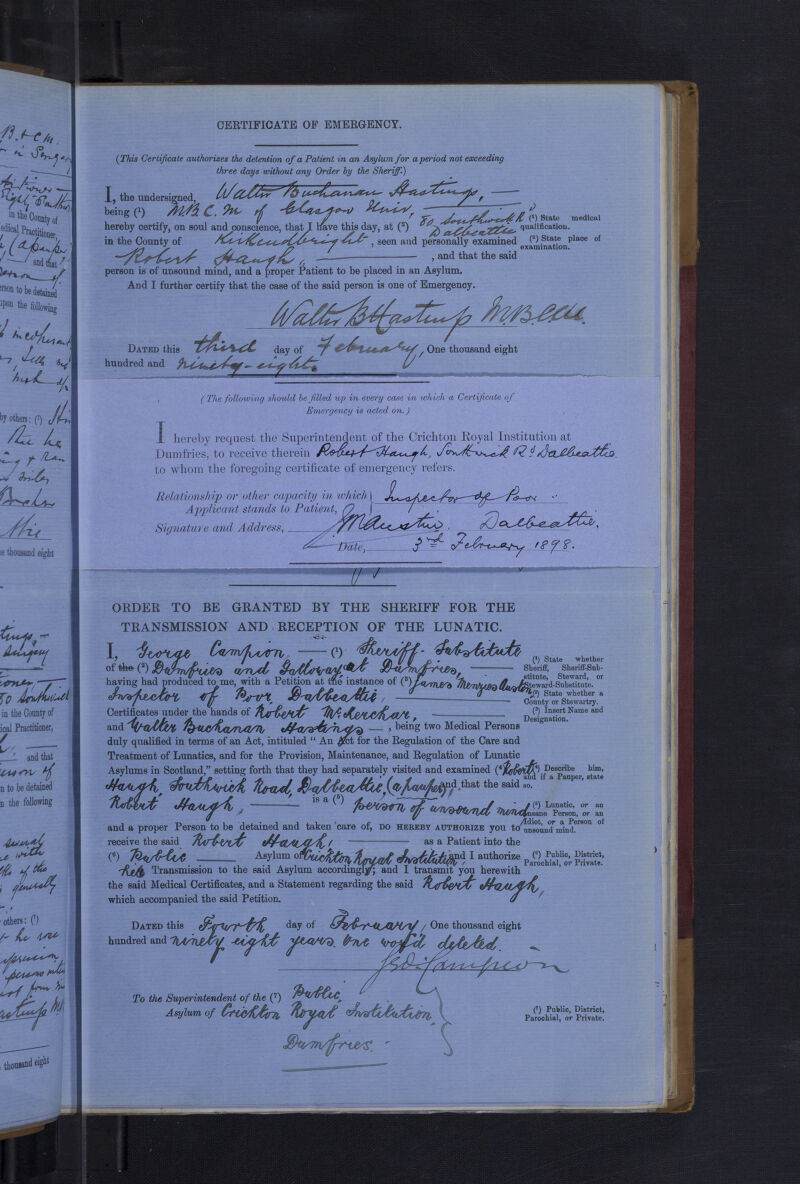 CERTIFICATE OF EMERGENCY.
(This Certificate authorizes the detention of a Patient in an Asylum for a period not exceeding
three days without any Order by the Sheriff.)
I, the undersigned, Walter Buchanan Hastings, —
being (¹) M.B.C.M of Glasgow Univ,
hereby certify, on soul and conscience, that I have this day, at (²) 80 Southwick Rd
Dalbeattie
in the County of Kirkcudbright, seen and personally examined
Robert Haugh, — , and that the said
person is of unsound mind, and a proper Patient to be placed in an Asylum.
And I further certify that the case of the said person is one of Emergency.
Walter B Hastings M.B.C.M.
DATED this third day of February, One thousand eight
hundred and ninety-eight.
(¹) State medical
qualification.
(²) State place of
examination.
(The following should be filled up in every case in which a Certificate of
Emergency is acted on.)
I hereby request the Superintendent of the Crichton Royal Institution at
Dumfries, to receive therein Robert Haugh, Southwick Rd Dalbeattie
to whom the foregoing certificate of emergency refers.
Relationship or other capacity in which
Applicant stands to Patient, Inspector of Poor
Signature and Address, JMAustin. Dalbeattie.
Date, 3rd February 1898.
ORDER TO BE GRANTED BY THE SHERIFF FOR THE
TRANSMISSION AND RECEPTION OF THE LUNATIC.
I, George Campion — (¹) Sheriff-Substitute
of the (²) Dumfries and Galloway at Dumfries, —
having had produced to me, with a Petition at the instance of (³) James Menzies Austin
Inspector of Poor Dalbeattie,
Certificates under the hands of Robert McKerchar,
and Walter Buchanan Hastings — , being two Medical Persons
duly qualified in terms of an Act, intituled "An Act for the Regulation of the Care and
Treatment of Lunatics, and for the Provision, Maintenance, and Regulation of Lunatic
Asylums in Scotland," setting forth that they had separately visited and examined (⁴ Robert
Haugh, Southwick Road, Dalbeattie, (a pauper), and that the said
Robert Haugh, — is a (⁵) person of unsound mind
and a proper Person to be detained and taken care of, DO HEREBY AUTHORIZE YOU to
receive the said Robert Haugh, — as a Patient into the
(⁶) Public — Asylum of Crichton Royal Institution, and I authorize
his Transmission to the said Asylum accordingly; and I transmit you herewith
the said Medical Certificates, and a Statement regarding the said Robert Haugh,
which accompanied the said Petition.
DATED this Fourth day of February, One thousand eight
hundred and ninety eight years. One word deleted.
Geo: Campion
To the Superintendent of the (⁷) Public,
Asylum of Crichton Royal Institution,
Dumfries.
(¹) State whether
Sheriff, Sheriff-Sub-
stitute, Steward, or
Steward-Substitute.
(²) State whether a
County or Stewartry.
(³) Insert Name and
Designation.
(⁴) Describe him,
and if a Pauper, state
so.
(⁵) Lunatic, or an
Insane Person, or an
Idiot, or a Person of
unsound mind.
(⁶) Public, District,
Parochial, or Private.
(⁷) Public, District,
Parochial, or Private.
B. & C.M.
in the County of
edical Practitioner,
and that
erson to be detained
upon the following
by others: (⁷)
e thousand eight
in the County of
ical Practitioner,
and that
n to be detained
n the following
others: (⁷)
thousand eight